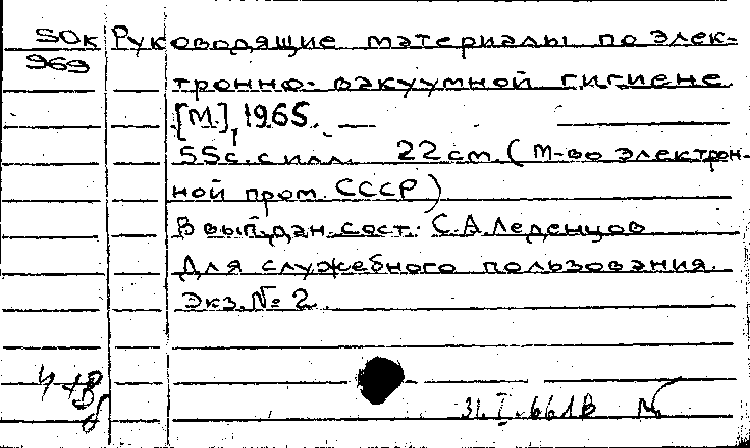 50к Руководящие материалы по элек-
969
тронно-вакуумной гигиене
[М.], 1965.
55с. с илл. 22 см. (М-во электрон-
ной пром. СССР)
В вып. дан. сост.: С.А.Леденцов
Для служебного пользования.
Экз. № 2.
31.I.66